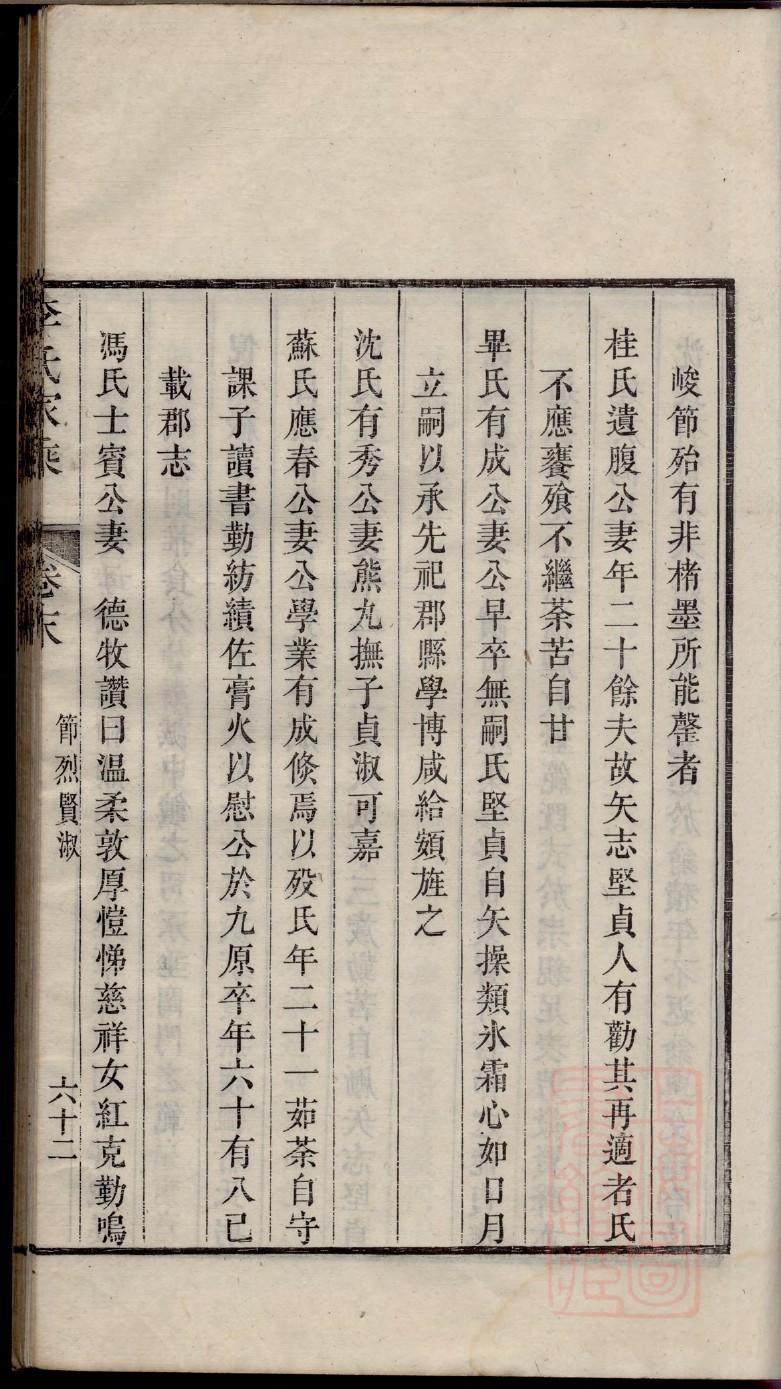 峻節殆有非楮墨所能罄者
桂氏遺腹公妻年二十餘夫故矢志堅貞人有勸其再適者氏
不應饔飱不繼茶苦自甘
畢氏有成公妻公早卒無嗣氏堅貞自矢操類氷霜心如日月
立嗣以承先祀郡縣學博咸給頟旌之
沈氏有秀公妻熊丸撫子貞淑可嘉
蘇氏應春公妻公學業有成倏焉以殁氏年二十一茹荼自守
課子讀書勤紡績佐膏火以慰公於九原卒年六十有八已
載郡志
馮氏士賓公妻 德牧讚曰溫柔敦厚愷悌慈祥女紅克勤鳴
李氏家乘 卷末 節烈賢淑 六十二